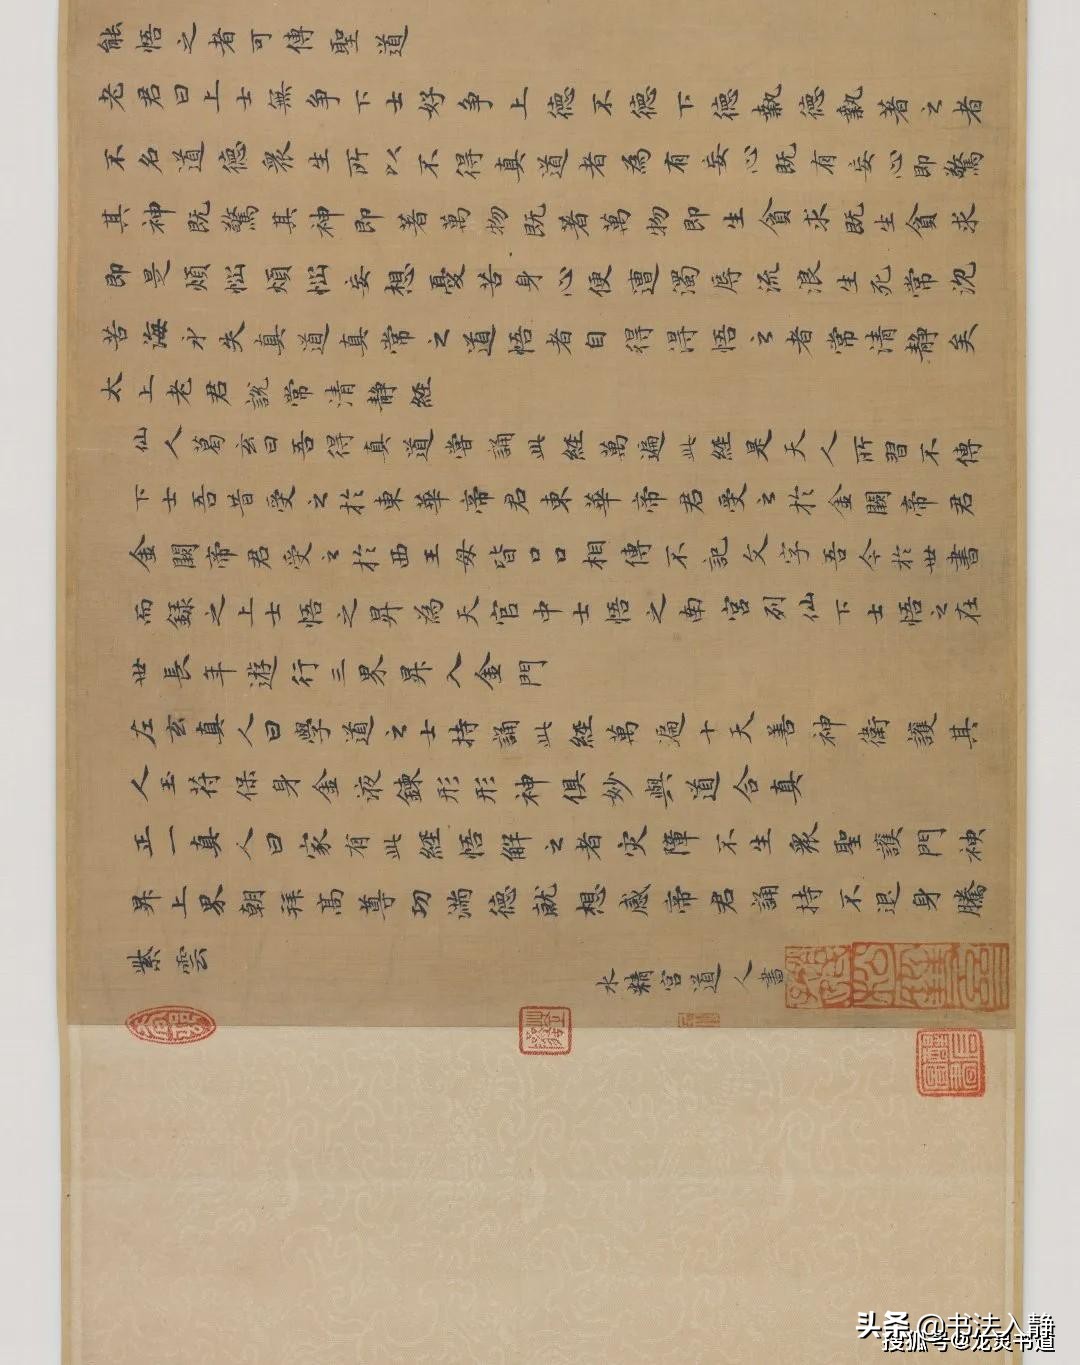 能悟之者可傳聖道
老君曰上士無争下士好争上德不德下德執德執著之者
不名道德衆生所以不得真道者為有妄心既有妄心即驚
其神既驚其神即著萬物既著萬物即生貪求既生貪求
即是煩惱煩惱妄想憂苦身心便遭濁辱流浪生死常沉
苦海永失真道真常之道悟者自得得悟之者常清靜矣
太上老君說常清靜經
仙人葛玄曰吾得真道嘗誦此經萬遍此經是天人所習不傳
下士吾昔受之於東華帝君東華帝君受之於金闕帝君
金闕帝君受之於西王母皆口口相傳不記文字吾今於世書
而錄之上士悟之昇為天官中士悟之南宮列仙下士悟之在
世長年遊行三界昇入金門
左玄真人曰學道之士持誦此經萬遍十天善神衛護其
人玉符保身金液鍊形形神俱妙與道合真
正一真人曰家有此經悟解之者灾障不生衆聖護門神
昇上界朝拜高尊功滿德就想感帝君誦持不退身騰
紫雲
水精宮道人書
头条@书法入静
搜狐号@龙灵书道